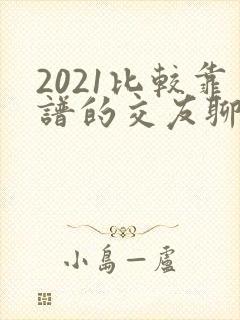 2021比較靠
譜的交友聊
小島一盧